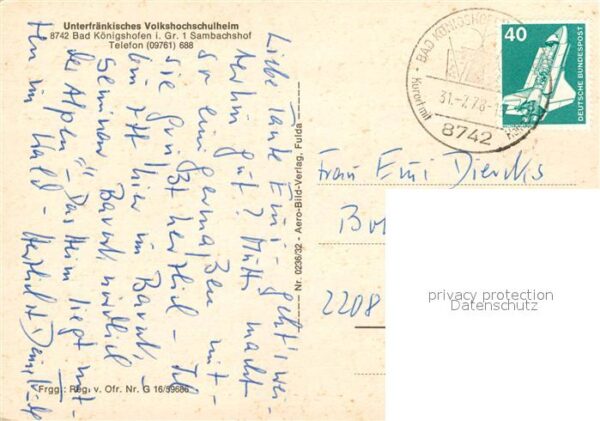 Unterfränkisches Volkshochschulheim
8742 Bad Königshofen i. Gr. 1 Sambachshof
Telefon (09761) 688
Liebe Tante Emi - geht's wei-
terhin gut? Mutti macht
so einigermaßen mit -
sie grüßt herzlich - Ich
bin hier im Barock-
Seminar "Barock nördlich
der Alpen" - Das Heim liegt mit-
ten im Wald - Herzlichst
Frgg.: Reg. v. Ofr. Nr. G 16/59686
Nr. 0236/32 - Aero-Bild-Verlag, Fulda
BAD KÖNIGSHOFEN
Kurort mit
31.-7.78
8742
40
DEUTSCHE BUNDESPOST
Frau Emi Diercks
2208
privacy protection
Datenschutz